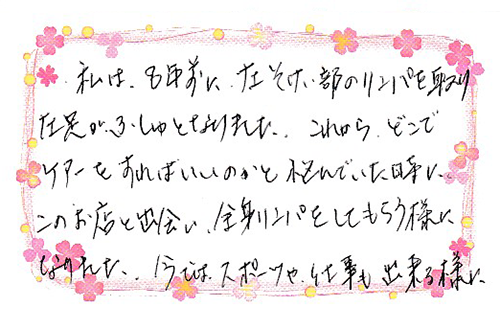 私は、8年前に、左そけい部のリンパを取り
左足がふしゅとなりました。これから、どこで
ケアーをすればいいのかと悩んでいた時に、
このお店と出会い、全身リンパをしてもらう様に
なりました。今では、スポーツや、仕事も出来る様に